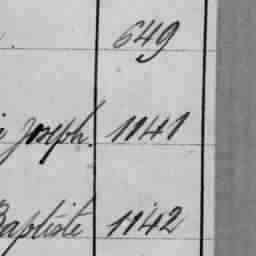 649
Joseph. 1141
Baptiste 1142